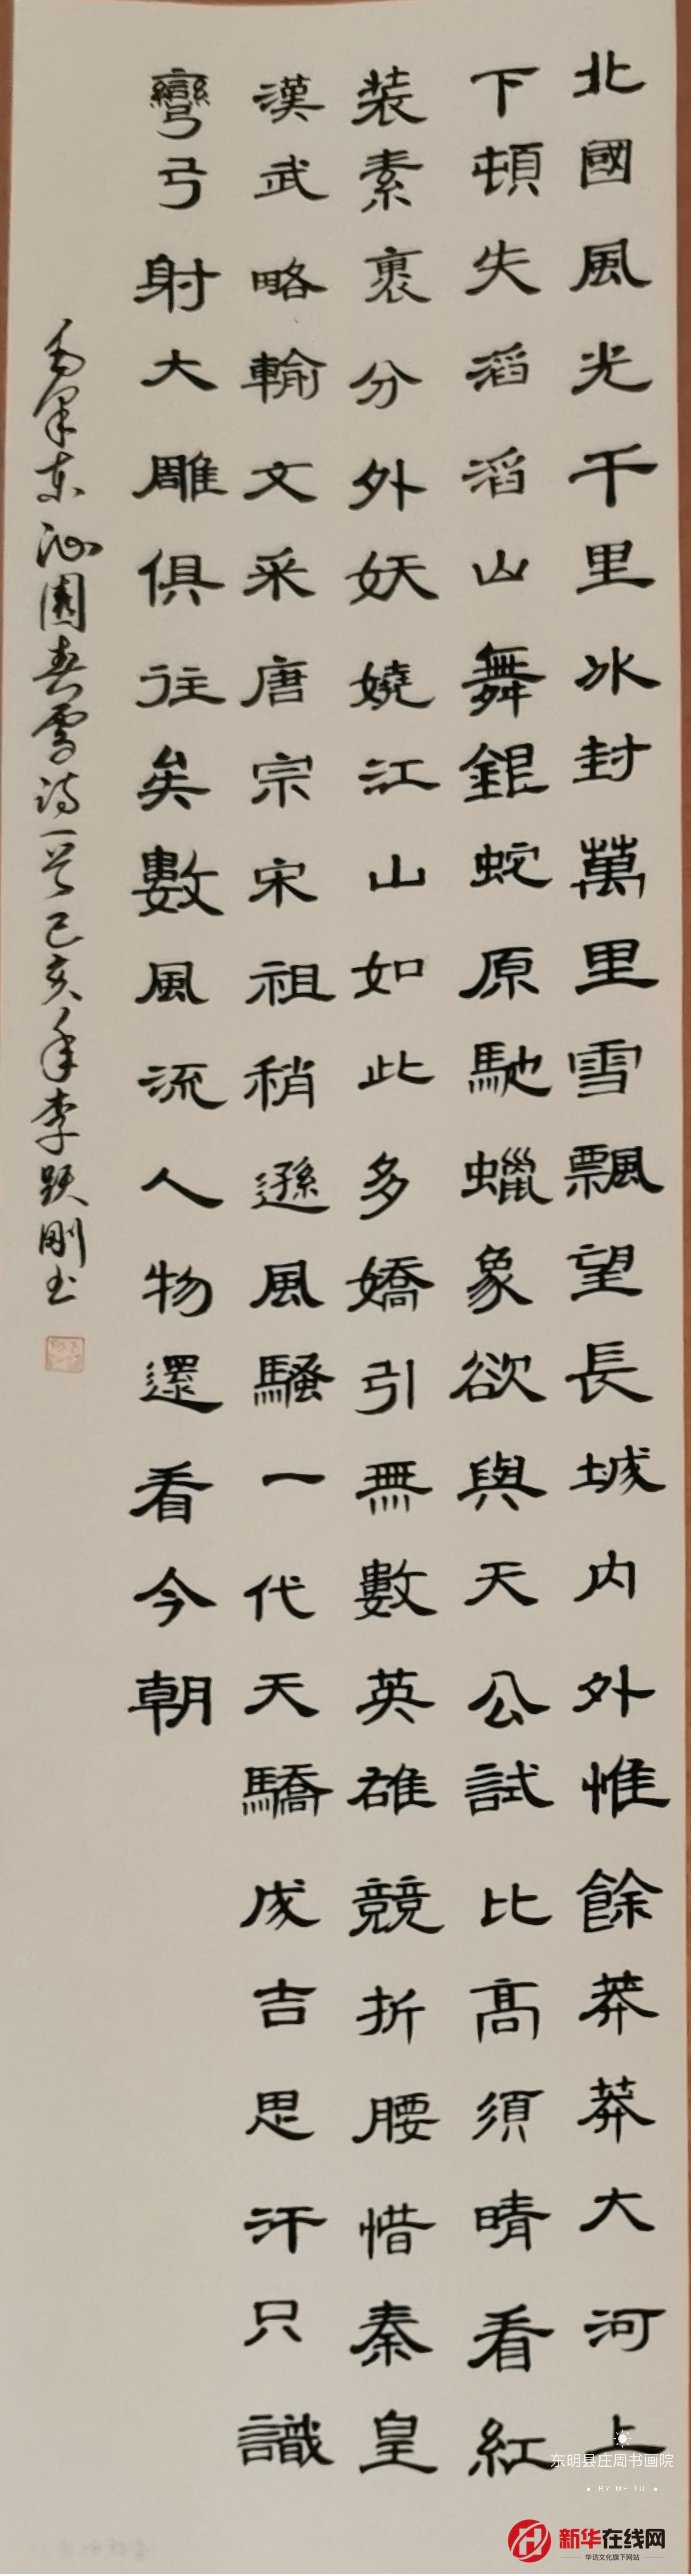 北國風光千里冰封萬里雪飄望長城内外惟餘莽莽大河上
下頓失滔滔山舞銀蛇原馳蠟象欲與天公試比高須晴看紅
装素裹分外妖嬈江山如此多嬌引無數英雄競折腰惜秦皇
漢武略輸文采唐宗宋祖稍遜風騷一代天驕成吉思汗只識
彎弓射大雕俱往矣數風流人物還看今朝
毛泽东沁園春雪诗一首己亥年李跃刚书
东明县庄周书画院
新华在线网
华访文化旗下网站